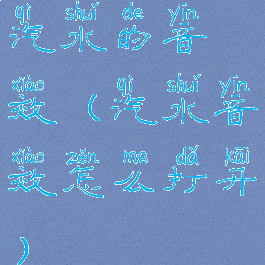 qì shuǐ de yīn
汽水的音
xiào (qì shuǐ yīn
效(汽水音
xiào zěn me dǎ kāi
效怎么打开
)